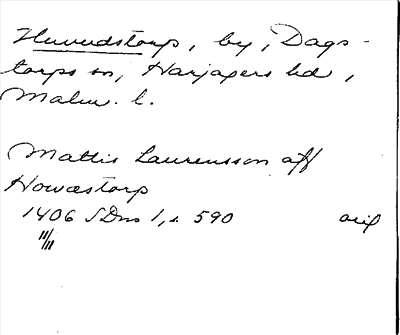 Huvudstorp, by, Dags-
torps sn, Harjagers hd,
Malm. l.
Mattis Laurensson aff
Howæstorp
1406 SDns 1, s. 590 orig
11/11